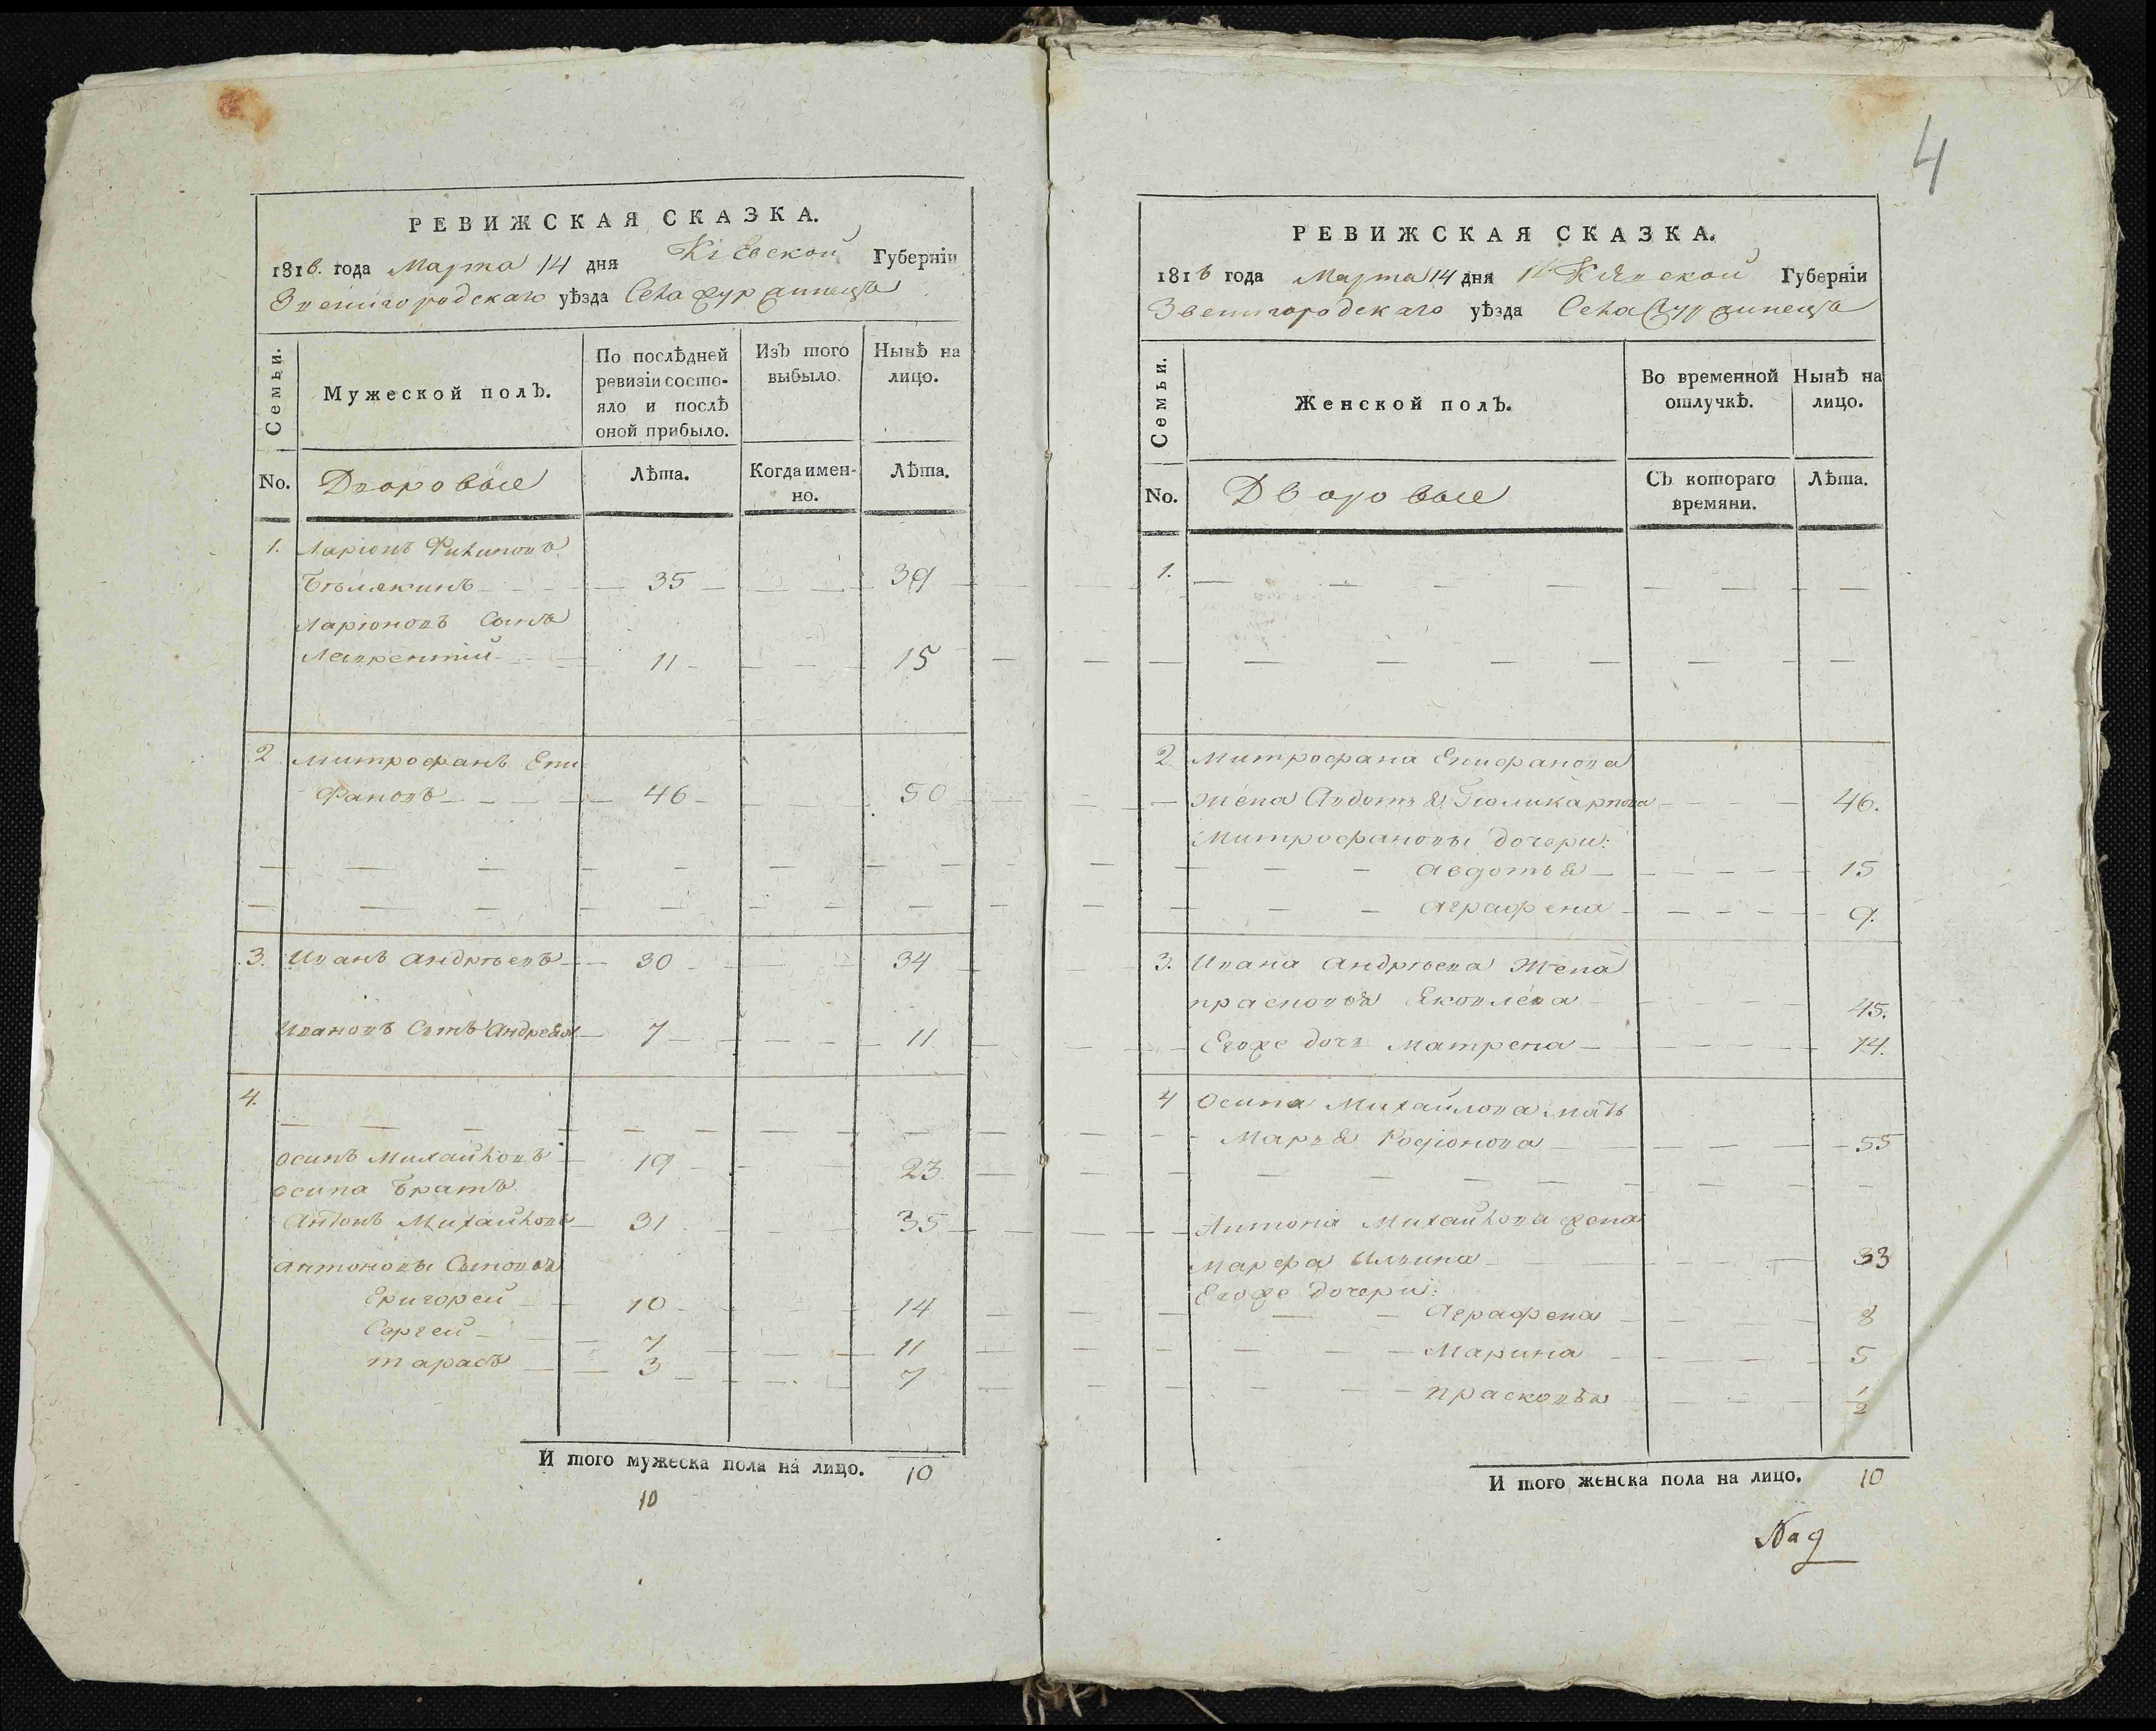 РЕВИЖСКАЯ СКАЗКА.
1816. года Марта 14 дня Кіевской Губерніи
Звенигородскаго уѣзда Села
Семьи.
Мужеской полЪ.
По послѣдней ревизіи состо-
яло и послѣ оной прибыло.
ИзЪ того выбыло.
Нынѣ на лицо.
No. Дворовые
Лѣта.
Когда имен-
но.
Лѣта.
1. Ларіонъ Филиповъ
Бѣлякинъ 35 39
Ларіоновъ Сынъ
Лаврентій 11 15
2 Митрофанъ Епи
фановъ 46 50
3. Иванъ Андрѣевъ 30 34
Ивановъ Сынъ Андреян 7 11
4.
Осипъ Михайловъ 19 23
Осипа Братъ
Антонъ Михайловъ 31 35
Антоновы Сыновья
Григорей 10 14
Сергей 7 11
Тарасъ 3 7
И того мужеска пола на лицо. 10
10
4
РЕВИЖСКАЯ СКАЗКА.
1816 года Марта 14 дня Кіевской Губерніи
Звенигородскаго уѣзда Села
Семьи.
Женской полЪ.
Во временной отлучкѣ.
Нынѣ на лицо.
No. Дворовые
СЪ котораго времяни.
Лѣта.
1.
2 Митрофана Епифанова
жена Авдотья Поликарпова 46.
Митрофановы дочери:
Авдотья 15
Аграфена 9.
3. Ивана Андрѣева Жена
прасковья Яковлева 45.
Егоже дочь Матрена 14.
4 Осипа Михайлова мать
Марья Родіонова 55
Антона Михайлова жена
Марфа Ильина 33
Егоже дочери:
Аграфена 8
Марина 5
прасковья 1/2
И того женска пола на лицо. 10